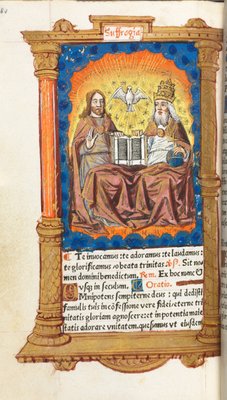 Suffragia
Te inuocamus: te adoramus: te laudamus:
te glorificamus o beata trinitas. Sit no-
men domini benedictum, Rem. Ex hoc nunc
vsq; in seculum. Oratio.
Mnipotens sempiterne deus: qui dedisti
famulis tuis in cōfessione vere fidei: eterne tri
nitatis gloriam agnoscere: et in potentia maie
statis adorare vnitatem. quesumus vt eiusdem